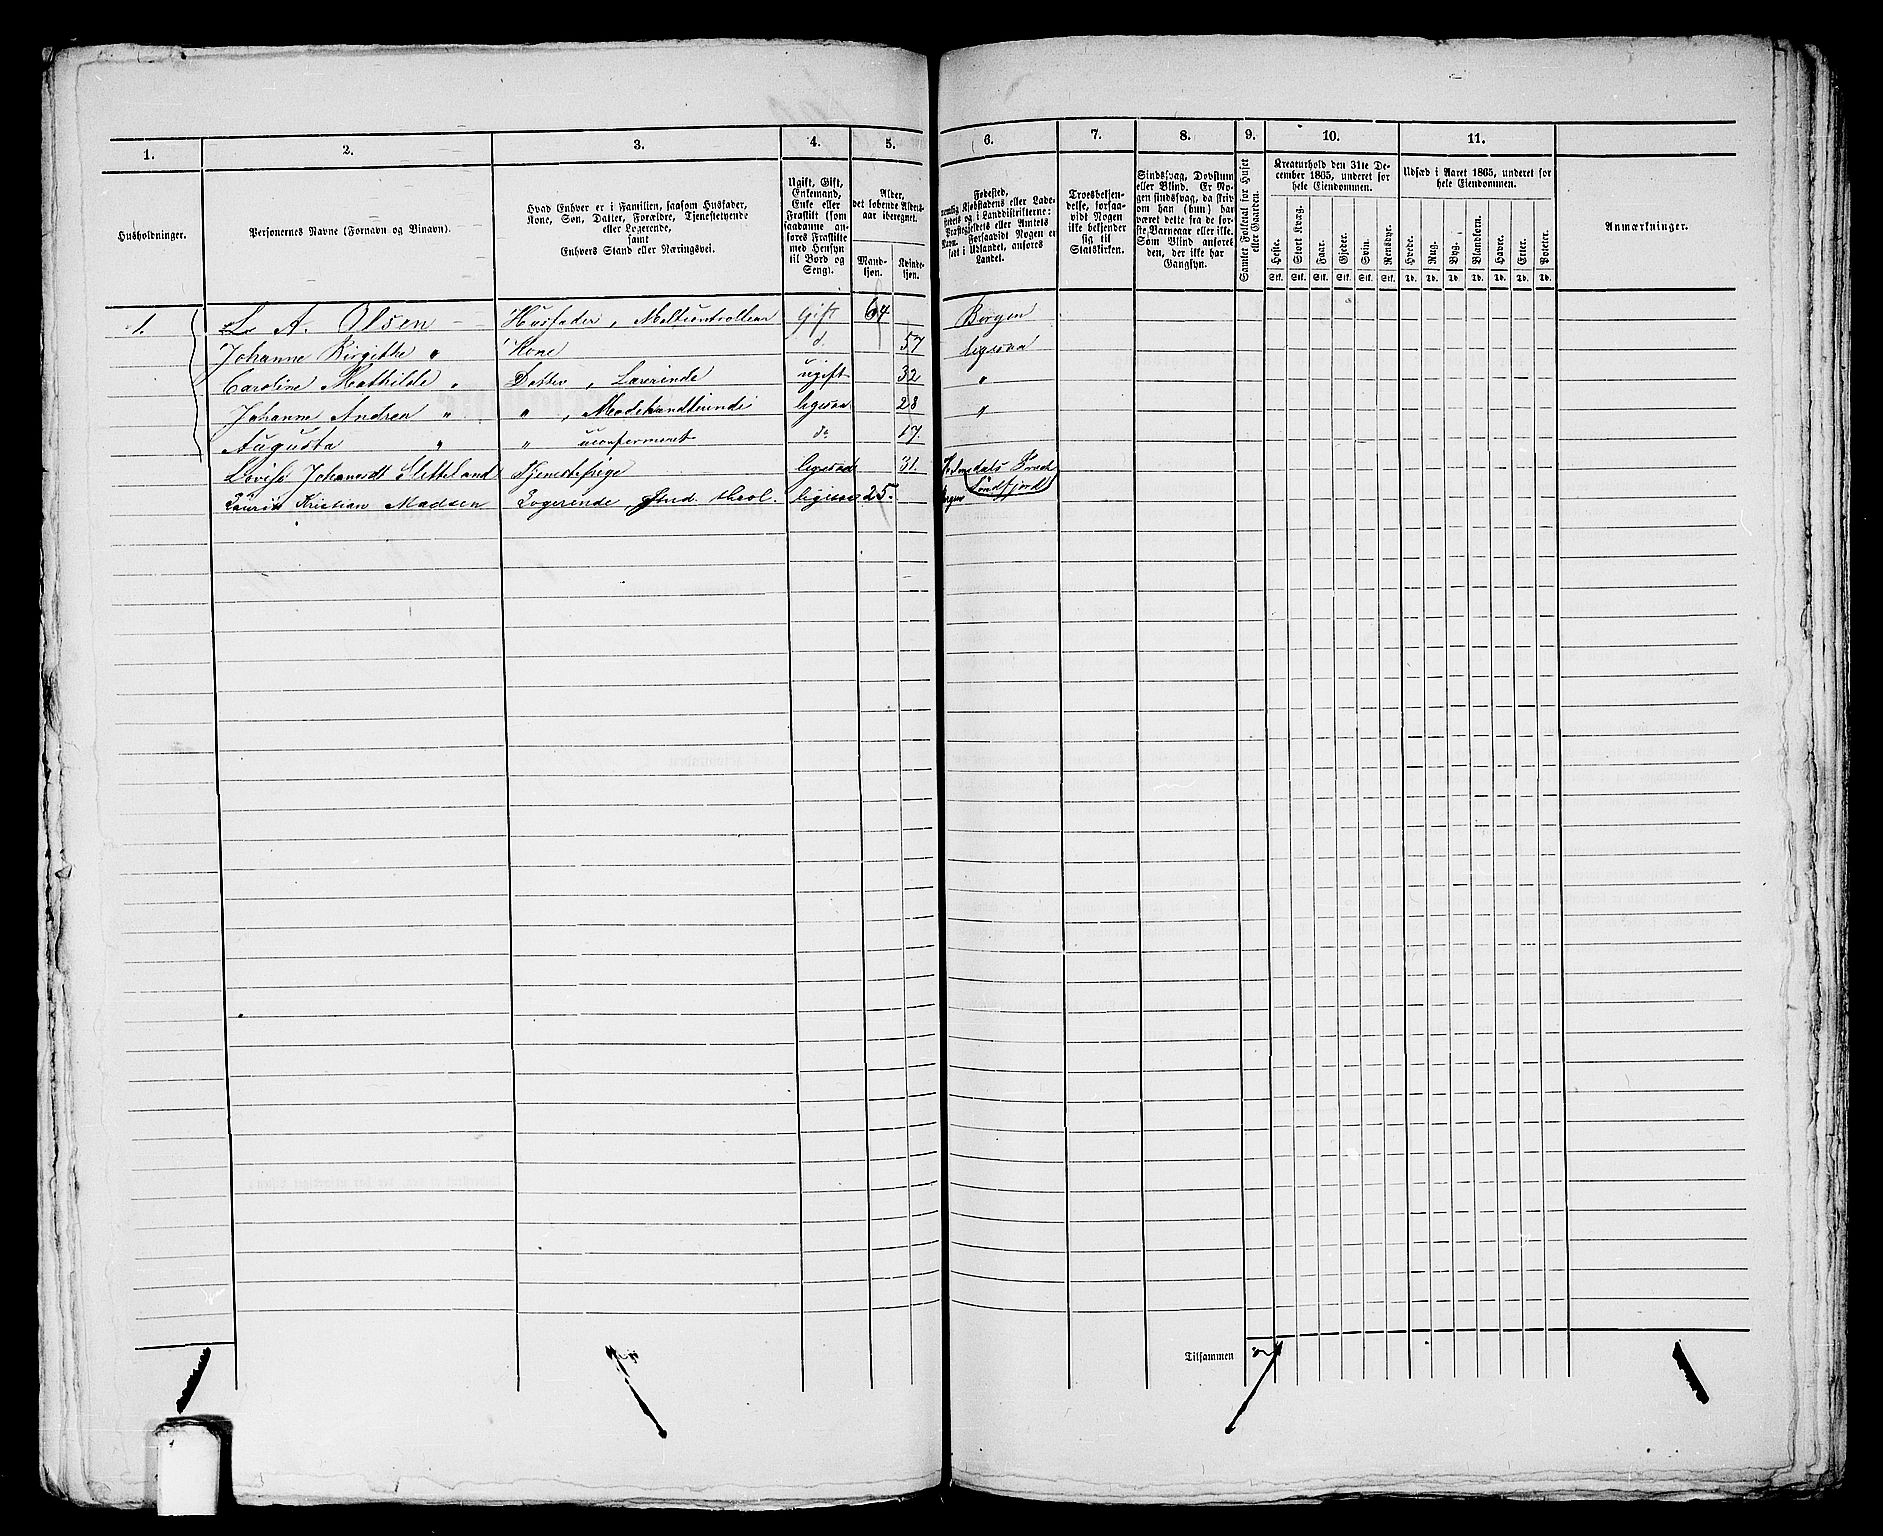 1. 2. 3. 4. 5. 6. 7. 8. 9. 10. 11.
Husholdninger.
Personernes Navne (Fornavn og Tilnavn).
Hvad Enhver er i Familien, saasom Husfader,
Kone, Søn, Datter, Forældre, Tjenestetyende
eller Logerende,
samt
Enhvers Stand eller Næringsvei.
Ugift, Gift,
Enkemand,
Enke eller
Fraskilt (som
saadanne an-
føres Fraskilte
med Hensyn
til Bord og
Seng).
Alder,
det løbende Alders-
aar iberegnet.
Mand-
kjøn.
Kvinde-
kjøn.
Fødested,
nemlig Kjøbstadens eller Lade-
stedets og i Landdistrikterne:
Præstegjeldets eller Amtets
Navn. Forsaavidt Nogen er
født i Udlandet, anføres
Landet.
Troesbekjen-
delse, forsaa-
vidt Nogen
ikke bekjender
sig til
Statskirken.
Sindssvag, Døvstum
eller Blind. Er No-
gen sindssvag, da skriv
om han (hun) har
været dette fra de før-
ste Barneaar eller ikke.
Som Blind anføres
den, der ikke har
Gangsyn.
Samlet Folketal for Huset
eller Gaarden.
Kreaturhold den 31te De-
cember 1865, underet for
hele Eiendommen.
Heste. Stort Kvæg. Faar. Gjeder. Svin. Rensdyr.
Stk. Stk. Stk. Stk. Stk. Stk.
Udsæd i Aaret 1865, underet for
hele Eiendommen.
Hvede. Rug. Byg. Blandkorn. Havre. Erter. Poteter.
Td. Td. Td. Td. Td. Td. Td.
Anmærkninger.
1. L. A. Olsen Husfader, Gift 64 Bergen
Johanne Birgitte " Kone d. 57 ligesaa
Caroline Mathilde " Datter, Lærerinde ugift 32 "
Johanne Andrea " " , Modehandlerinde ligesaa 28 "
Augusta " " uconfirmeret do 17.
Lovise Johansdt Sletteland Tjenestepige ligesaa 31. Søndfjord
Laurits Kristian Madsen Logerende, Stud. theol. ligesaa 25. Bergen
Tilsammen